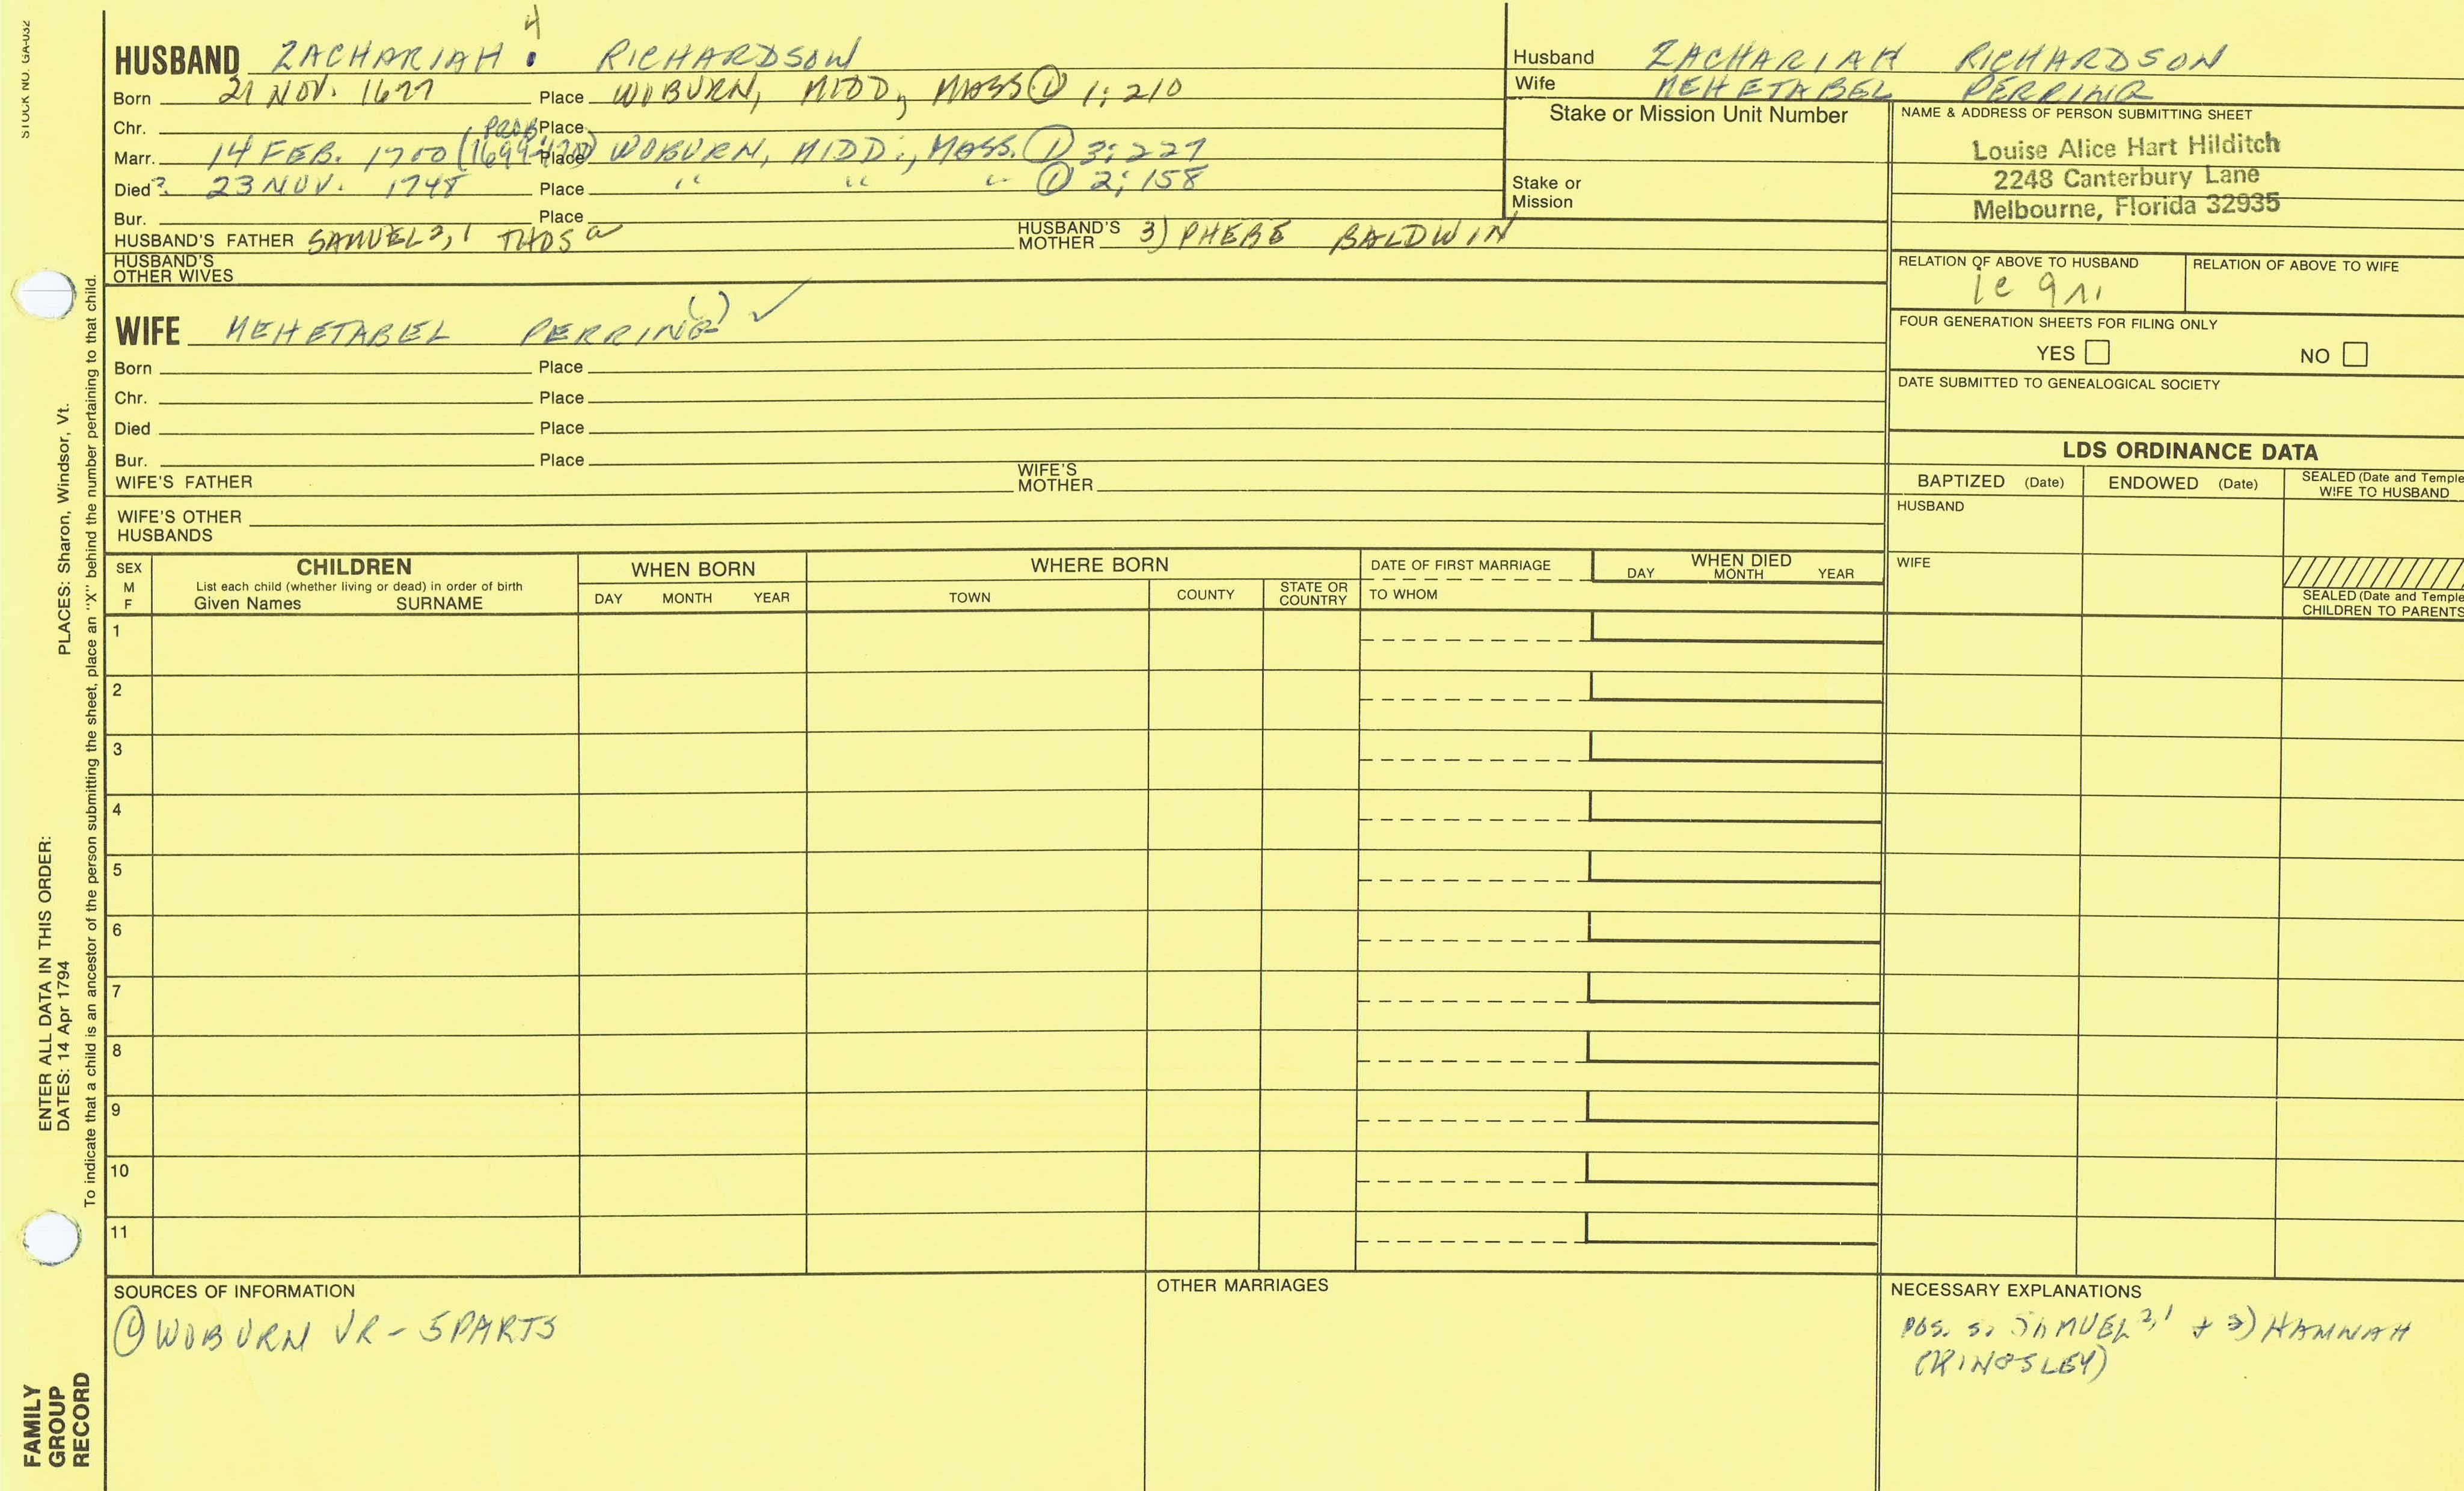 STOCK NO. GA-032
4
HUSBAND ZACHARIAH RICHARDSON
Born 21 NOV. 1677 Place WOBURN, MIDD, MASS ① 1:210
Chr. Place
PROB
Marr. 14 FEB. 1700 (1699 Place WOBURN, MIDD., MASS. ① 3:227
Died ? 23 NOV. 1748 Place " " " ① 2:158
Bur. Place
HUSBAND'S FATHER SAMUEL 2,1 THOS a HUSBAND'S MOTHER 3) PHEBE BALDWIN
HUSBAND'S
OTHER WIVES
Husband ZACHARIAH RICHARDSON
Wife MEHETABEL PERRING
Stake or Mission Unit Number
Stake or
Mission
NAME & ADDRESS OF PERSON SUBMITTING SHEET
Louise Alice Hart Hilditch
2248 Canterbury Lane
Melbourne, Florida 32935
RELATION OF ABOVE TO HUSBAND RELATION OF ABOVE TO WIFE
FOUR GENERATION SHEETS FOR FILING ONLY
YES NO
DATE SUBMITTED TO GENEALOGICAL SOCIETY
( ) ✓
WIFE MEHETABEL PERRING
Born Place
Chr. Place
Died Place
Bur. Place
WIFE'S FATHER WIFE'S MOTHER
WIFE'S OTHER
HUSBANDS
LDS ORDINANCE DATA
BAPTIZED (Date) ENDOWED (Date) SEALED (Date and Temple
WIFE TO HUSBAND
HUSBAND
WIFE
SEALED (Date and Temple
CHILDREN TO PARENTS
SEX
M
F
CHILDREN
List each child (whether living or dead) in order of birth
Given Names SURNAME
WHEN BORN
DAY MONTH YEAR
WHERE BORN
TOWN COUNTY STATE OR COUNTRY
DATE OF FIRST MARRIAGE
TO WHOM
WHEN DIED
DAY MONTH YEAR
1
2
3
4
5
6
7
8
9
10
11
SOURCES OF INFORMATION
① WOBURN VR - 5 PARTS
OTHER MARRIAGES
NECESSARY EXPLANATIONS
POS. S. SAMUEL 2,1 + 3) HANNAH
(KINGSLEY)
PLACES: Sharon, Windsor, Vt.
ENTER ALL DATA IN THIS ORDER:
DATES: 14 Apr 1794
To indicate that a child is an ancestor of the person submitting the sheet, place an "X" behind the number pertaining to that child.
FAMILY
GROUP
RECORD